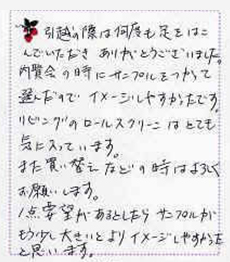 引越の際は何度も足をはこ
んでいただき ありがとうございました。
内覧会の時にサンプルをつかって
選んだので イメージしやすかったです。
リビングのロールスクリーンはとても
気に入っています。
また買い替えなどの時はよろしく
お願いします。
1点要望があるとしたら サンプルが
もう少し大きいとよりイメージしやすかったと
思います。